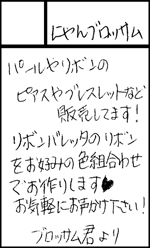 にゃんブロッサム
パールやリボンの
ピアスやブレスレットなど
販売してます!
リボンバレッタのリボン
をお好みの色組合わせ
でお作りします♥
お気軽にお声かけ下さい!
ブロッサム君より